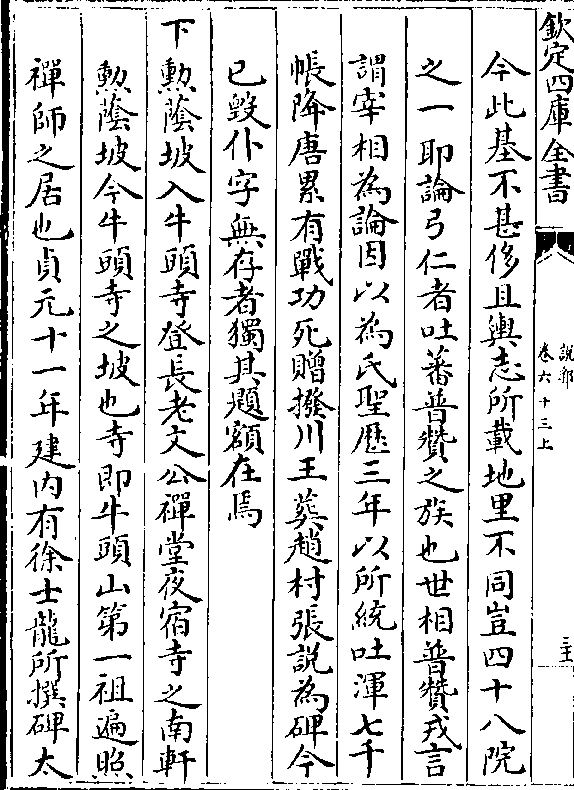 欽定四庫全書
說郛
卷六十三上
今此基不甚侈且輿志所載地里不同豈四十八院
之一耶論弓仁者吐蕃普贊之族也世相普贊戎言
謂宰相為論因以為氏聖厯三年以所統吐渾七千
帳降唐累有戰功死贈撥川王葬趙村張說為碑今
已毀仆字無存者獨其題額在焉
下勲蔭坡入牛頭寺登長老文公禪堂夜宿寺之南軒
勲蔭坡今牛頭寺之坡也寺即牛頭山第一祖遍照
禪師之居也貞元十一年建内有徐士龍所撰碑太